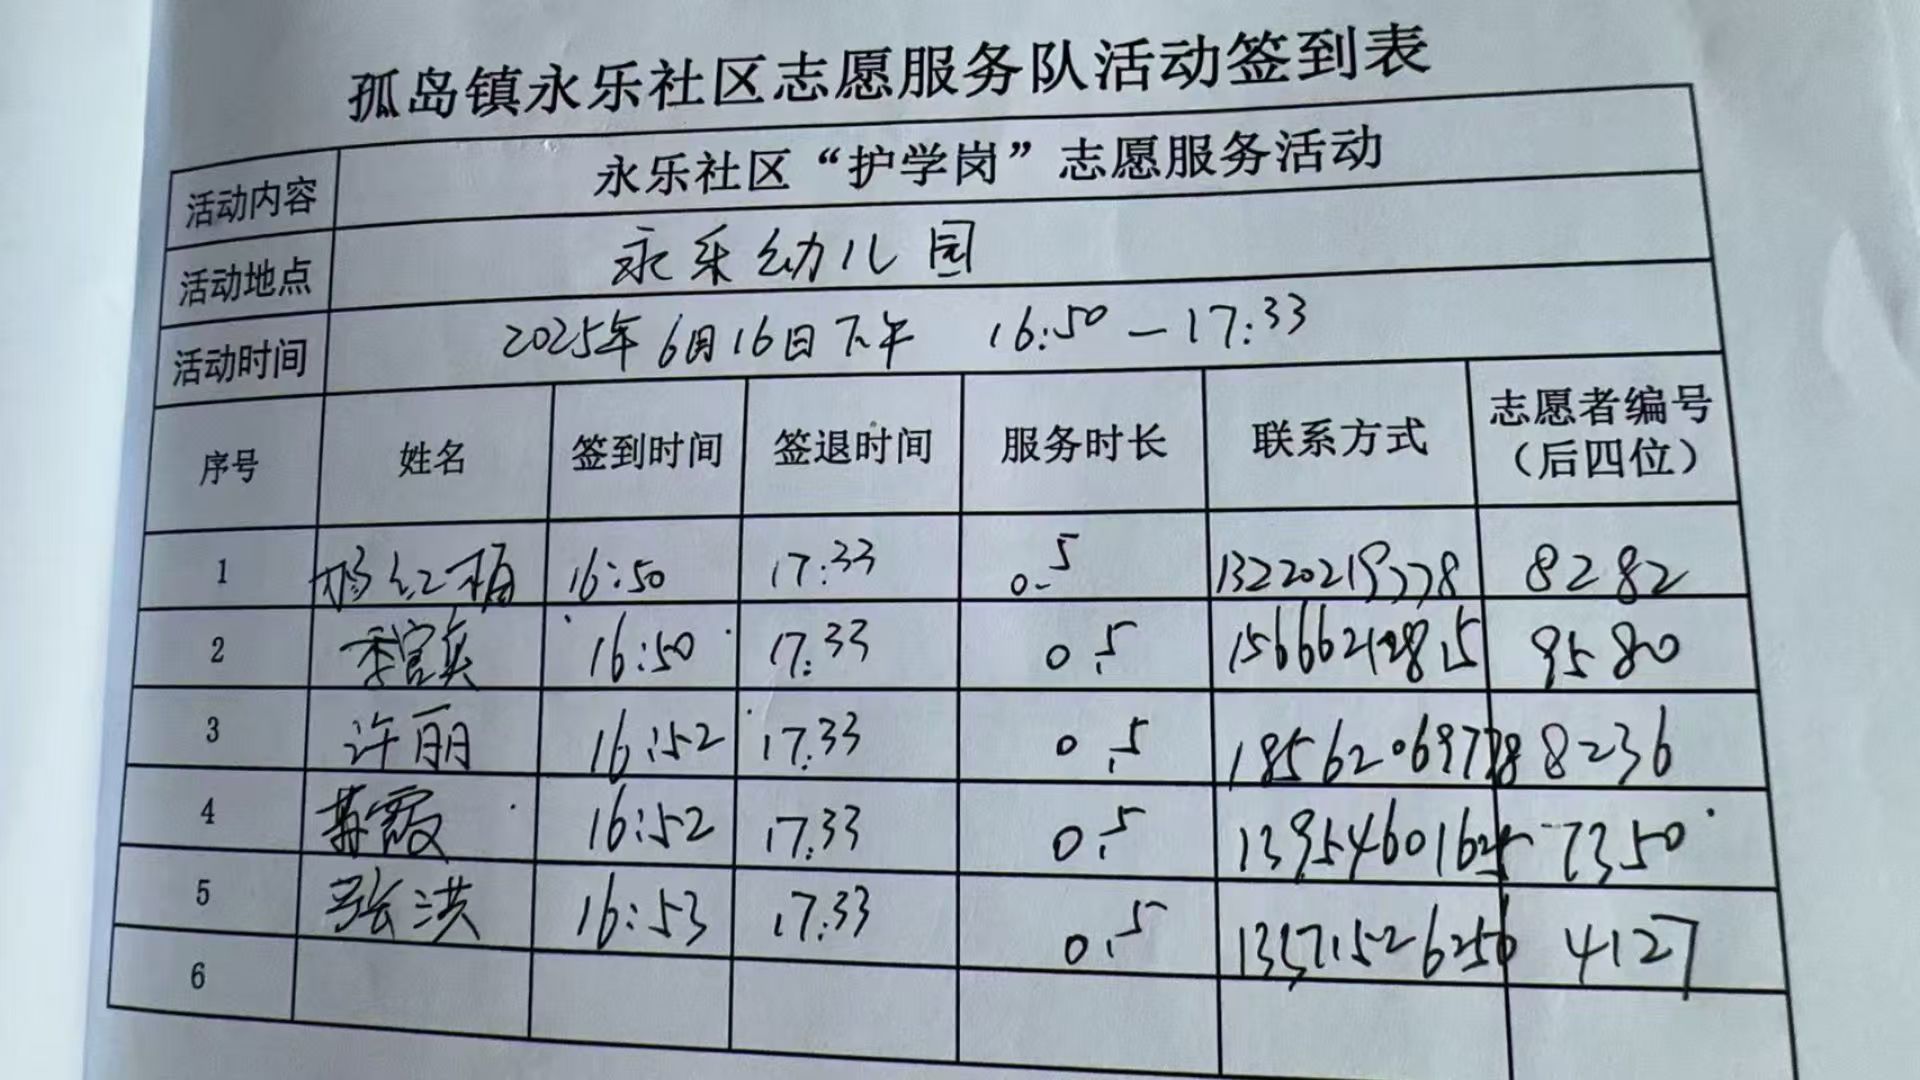 孤岛镇永乐社区志愿服务队活动签到表
活动内容 永乐社区“护学岗”志愿服务活动
活动地点 永乐幼儿园
活动时间 2025年6月16日下午 16:50—17:33
序号 姓名 签到时间 签退时间 服务时长 联系方式 志愿者编号
（后四位）
1 杨红梅 16:50 17:33 0.5 8282
2 16:50 17:33 0.5 15666212815 9580
3 许丽 16:52 17:33 0.5 8236
4 16:52 17:33 0.5 7350
5 张洪 16:53 17:33 0.5 4127
6